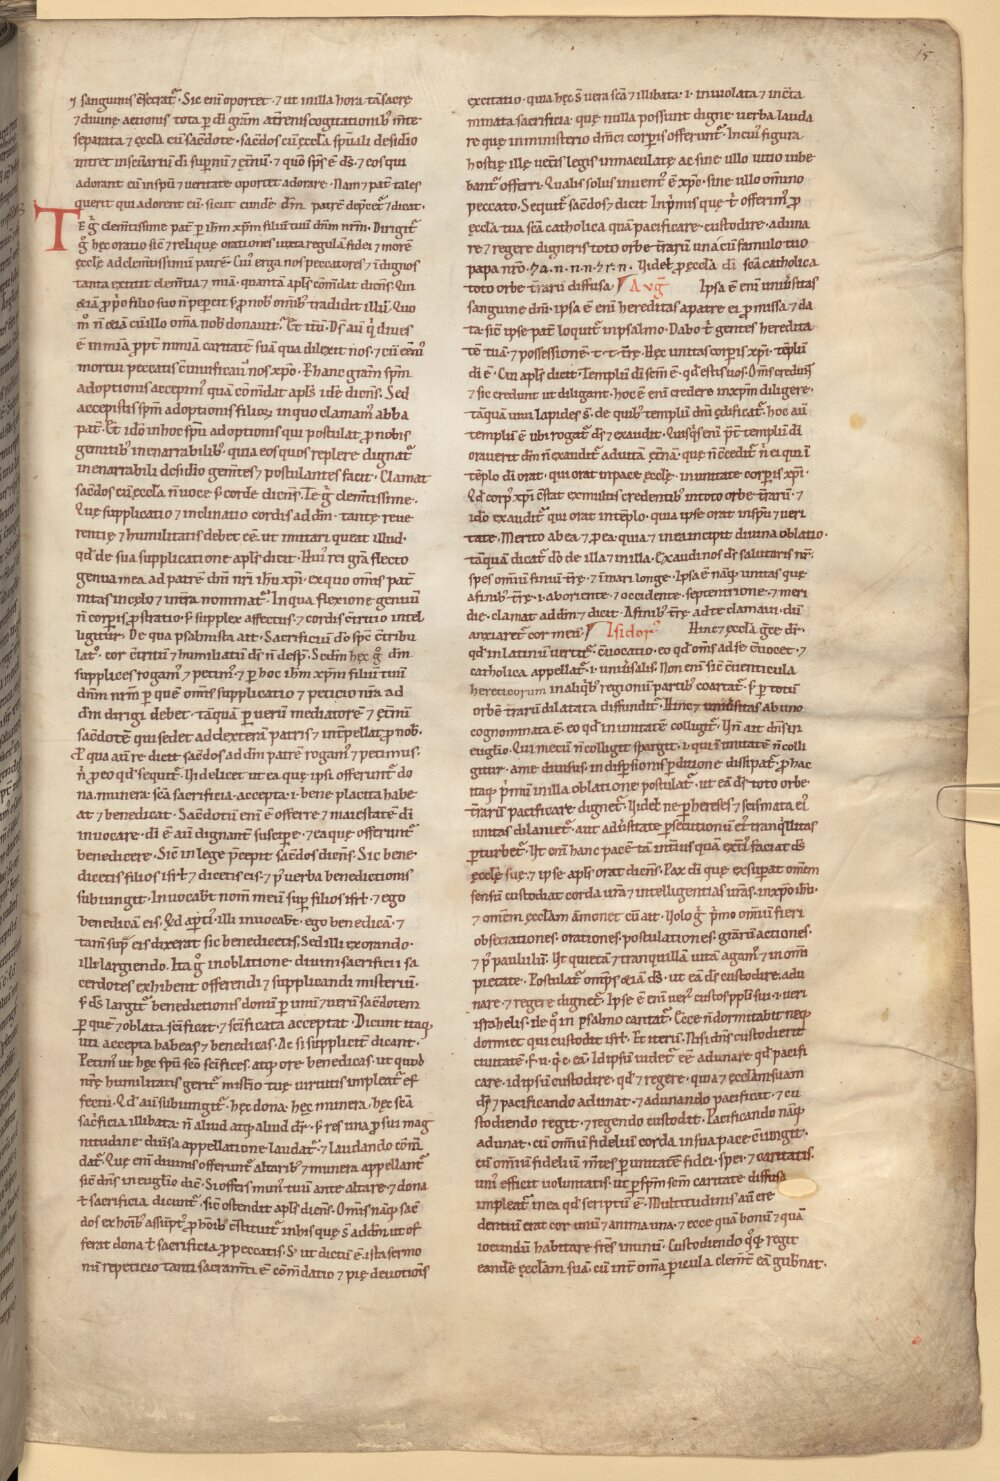 15
⁊ sanguinis c̄secrat᷑. Sic eni oportet. ⁊ ut in illa hora tā sacrę
⁊ diuinę actionis tota ꝑ dī grām a t̄renis cogitationibꝰ m̄te
separata ⁊ ęccl̄a cū sac̄dote. sac̄dos cū ęccl̄a sp̄uali desidio
intret in sc̄uariū dī supernū ⁊ ęt̄nū. ⁊ quō sp̄s ē ds̄. ⁊ eos qui
adorant eū in sp̄u ⁊ ueritate oportet adorare. Nam ⁊ pat̄ tales
querit qui adorent eū. sicut eundē dn̄m patrē dep̄cet᷑ ⁊ dicat.
TE g̊ clem̄tissime pat̄ ꝑ ih̄m xp̄m filiū tuū dn̄m nr̄m. Dirigit᷑
g̊ hęc oratio sic̄ ⁊ reliquę orationes iuxta regulā fidei ⁊ morē
ęccl̄ę ad clem̄tissimū patrē. Cuiꝰ erga nos peccatores ⁊ īdignos
tanta extitit clem̄tia ⁊ mīa. quantā apl̄s cōm̄dat dicens. Qui
&iā ꝓprio filio suo n̄ peꝑcit s; ꝓ nob̄ om̄ibꝰ tradidit illū. Quo
m̊ n̄ &iā cū illo om̄a nob̄ donauit. Et itū. Ds̄ aū q̇ diues
ē in mīa ꝓpt̄ nimiā caritatē suā qua dilexit nos. ⁊ cū eēmꝰ
mortui peccatis c̄uiuificauit nos xp̄o. Ꝑ hanc grām sp̄m
adoptionis accepimꝰ quā cōm̄dat apl̄s idē dicens. Sed
accepistis sp̄m adoptionis filioꝝ in quo clamamꝰ abba
pat̄. Et idō in hoc sp̄u adoptionis qui postulat ꝓ nobis
gemitibꝰ inenarrabilibꝰ. quia eos quos replere dignat᷑
inenarrabili desidio gem̄tes ⁊ postulantes facit. Clamat
sac̄dos cū ęccl̄a n̄ uoce s; corde dicens. Te g̊ clem̄tissime.
Quę supplicatio ⁊ inclinatio cordis ad dm̄. tantę reue
rentię ⁊ humilitatis debet eē. ut imitari queat illud.
qd̄ de sua supplicatione apl̄s dicit. Huiꝰ rei grā flecto
genua mea ad patrē dn̄i nr̄i ih̄u xp̄i. ex quo omīs pat̄
nitas in cęlo ⁊ in t̄ra nominat᷑. In qua flexione genuū
n̄ corꝑis ꝓstratio s; supplex affectus. ⁊ cordis c̄tritio intel
ligitur. De qua psalmista ait. Sacrificiū dō sp̄c c̄tribu
latꝰ. cor c̄tritū ⁊ humiliatū ds̄ n̄ desp̄. Sedm̄ hęc g̊ dn̄m
supplices rogamꝰ ⁊ petimꝰ. ⁊ ꝑ hoc ih̄m xp̄m filiū tuū
dn̄m nr̄m ꝑ quē omīs supplicatio ⁊ peticio nr̄a ad
dm̄ dirigi debet. tāquā ꝑ uerū mediatorē ⁊ ęt̄nū
sac̄dotē qui sedet ad dexterā patris ⁊ int̄pellat ꝓ nob̄.
Ꝑ qua aū re dicit sac̄dos ad dm̄ ⁊ patrē rogamꝰ ⁊ petimus.
n̄ ꝑ eo qd̄ sequit᷑. Uidelicet ut ea quę ipsi offerunt᷑ do
na. munera. sc̄a sacrificia. accepta. i. bene placita habe
at ⁊ benedicat. Sac̄dotū enī ē offerre ⁊ maiestatē dī
inuocare. dī ē aū dignant̄ suscipe. ⁊ ea quę offerunt᷑
benedicere. Sic̄ in lege p̄cepit sac̄dos dicens. Sic bene
dicetis filios isr̄l ⁊ dicetis eis. ⁊ p̄ uerba benedictionis
subiungit. Inuocabt̄ nom̄ meū suꝑ filios isr̄l. ⁊ ego
benedicā eis. Qd̄ aꝑtiꝰ. illi inuocabt̄. ego benedicā. ⁊
tam̄ supꝰ eis dixerat sic benedicetis. Sed illi exorando.
ille largiendo. Ita g̊ in oblatione diuini sacrificii sa
cerdotes exhibent offerendi ⁊ supplicandi misteriū.
s; ds̄ largit᷑ benedictionis donū ꝑ unū ⁊ uerū sac̄dotem
ꝑ quē ⁊ oblata sc̄ificat. ⁊ sc̄ificata acceptat. Dicunt itaq;
uti accepta habeas ⁊ benedicas. Ac si suppliciter dicant.
Petimꝰ ut hęc sp̄u sc̄o sc̄ifices. atq; ore benedicas. ut quod
nr̄ę humilitatis gerit᷑ mist̄io tuę uirtutis impleat᷑ ef
fectu. Qd̄ aū subiungit᷑. hęc dona. hęc munera. hęc sc̄a
sac̄ficia illibata. n̄ aliud atq; aliud dr̄. s; res una ꝓ sui mag
nitudine diu̇sa appellatione laudat᷑. ⁊ laudando cōm̄
dat᷑. Quę enī diuinis offerunt᷑ altaribꝰ ⁊ munera appellant᷑
sic̄ dn̄s in euglīo dic̄. Si offers munꝰ tuū ante altare. ⁊ dona
ł sacrificia dicunt᷑. sic̄ ostendit apl̄s dicens. Omīs nāq; sac̄
dos ex hōibꝰ assūptꝰ ꝓ hōibꝰ c̄stituit᷑ in his quę s̄ ad dm̄ ut of
ferat dona ł sacrificia ꝓ peccatis. S; ut dictū ē. ista sermo
nū repeticio tanti sacram̄ti ē cōm̄datio ⁊ pię deuotionis
excitatio. quia hęc s̄ uera sc̄a ⁊ illibata. i. inuiolata ⁊ inc̄ta
minata sacrificia. quę nulla possunt digne uerba lauda
re quę in ministerio dn̄ici corꝑis offerunt᷑. In cuiꝰ figura
hostię illę uet̄is legis inmaculatę ac sine ullo uitio iube
bant᷑ offerri. Qualis solus inuentꝰ ē xp̄c. sine ullo om̄ino
peccato. Sequit᷑ sac̄dos ⁊ dicit. In p̄mis quę t̄ offerimꝰ ꝓ
ęccl̄a tua sc̄a catholica quā pacificare. custodire. aduna
re ⁊ regere digneris toto orbe t̄rarū una cū famulo tuo
papa nr̄o. ⁊ a. n. n. n. ⁊ r. n. Uidel̄. ꝓ ęccl̄a dī sc̄a catholica
toto orbe t̄rarū diffusa. Aug̃ Ipsa ē enī uniu̇sitas
sanguine dn̄i. ipsa ē enī hereditas a patre ei ꝓmissa. ⁊ da
ta. sic̄ ipse pat̄ loquit᷑ in psalmo. Dabo t̄ gentes heredita
tē tuā. ⁊ possessionē. t. t. t̄rę. Hęc unitas corꝑis xp̄i. tēplū
dī ē. Cui apl̄s dicit. Templū dī sc̄m ē. qd̄ estis uos. Om̄s credunt
⁊ sic credunt ut diligant. hoc ē enī credere in xp̄m diligere.
tāquā uiui lapides s̄. de quibꝰ templū dn̄i ędificat᷑. hoc aū
templū ē ubi rogat᷑ ds̄ ⁊ exaudit. Quisq̇s enī p̄t̄ templū dī
orauerit dm̄ n̄ exaudit᷑ ad uitā ęt̄nā. quę n̄ c̄cedit᷑ n̄ ei qui ī
tēplo dī orat. qui orat in pace ęccl̄ę. in unitate corꝑis xp̄i.
Qd̄ corpꝰ xp̄i c̄stat ex multis credentibꝰ in toto orbe t̄rarū. ⁊
idō exaudit᷑ qui orat in tēplo. quia ipse orat in sp̄u ⁊ ueri
tate. Merito ab ea ⁊ ꝓ ea. quia ⁊ in ea incipit diuina oblatio.
tāquā dicat᷑ dō de illa ⁊ in illa. Exaudi nos ds̄ salutaris nr̄.
spes omiū finiū t̄rę. ⁊ ī mari longe. Ipsa ē nāq; unitas quę
a finibꝰ t̄rę. i. ab oriente ⁊ occidente. septentrione. ⁊ meri
die. clamat ad dm̄ ⁊ dicit. A finibꝰ t̄rę. ad te clamaui. dū
anxiaret᷑ cor meū. Isidorꝰ Hinc ⁊ ęccl̄a gc̄e dr̄.
qd̄ in latinū uertit᷑. c̄uocatio. eo qd̄ om̄s ad se c̄uocet. ⁊
catholica appellat᷑. i. uniu̇salis. Non enī sic̄ c̄uenticula
hereticorum in aliq̇bꝰ regionū partibꝰ coartat᷑. s; ꝑ totū
orbē t̄rarū dilatata diffundit᷑. Hinc ⁊ uniu̇sitas ab uno
cognominata ē. eo qd̄ in unitatē colligit᷑. Un̄ ait dn̄s in
euglīo. Qui mecū n̄ colligit spargit. i. qui ī unitatē n̄ colli
gitur. a me diuisus. in disꝑsionis ꝑditione dissipat᷑. ꝓ hac
itaq; p̄mū in illa oblatione postulat᷑. ut eā ds̄ toto orbe
t̄rarū pacificare dignet᷑. Uidel̄. ne ꝑ hereses ⁊ scismata eiꝰ
unitas dilaniet᷑. aut adu̇sitate ꝑsecutionū eiꝰ tranq̇llitas
ꝑturbet᷑. Ut enī hanc pacē tā intiꝰus quā ext̄iꝰ faciat ds̄
ęccl̄ę suę. ⁊ ipse apl̄s orat dicens. Pax dī que exsuꝑat om̄em
sensū custodiat corda ur̄a ⁊ intelligentias ur̄as. in xp̄o ih̄u.
⁊ om̄em ęccl̄am āmonet cū ait. Uolo g̊ p̄mo omiū fieri
obsecrationes. orationes. postulationes. grārū actiones.
⁊ p̄ paululū. Ut quietā ⁊ tranquillā uitā agamꝰ ⁊ in om̄i
pietate. Postulat᷑ om̄ps &iā ds̄. ut eā ds̄ custodire. adu
nare. ⁊ regere dignet᷑. Ipse ē enī uerꝰ custos ppl̄i sui. i. ueri
israhelis. de q̊ in psalmo cantat᷑. Ecce n̄ dormitabit neq;
dormiet qui custodit isr̄l. Et iterū. Nisi dn̄s custodierit
ciuitatē. f. u. q̇. c. eā. Id ipsū uidet᷑ eē adunare qd̄ pacifi
care. id ipsū custodire. qd̄ ⁊ regere. quia ⁊ ęccl̄am suam
ds̄ ⁊ pacificando adunat. ⁊ adunando pacificat. ⁊ cu
stodiendo regit. ⁊ regendo custodit. Pacificando nāq;
adunat. cū omiū fideliū corda in sua pace c̄iungit.
cū omiū fideliū m̄tes ꝑ unitatē fidei. spei. ⁊ caritatis.
uniꝰ efficit uoluntatis. ut ꝑ sp̄m sc̄m caritate diffusa
impleat᷑ in ea qd̄ scriptū ē. Multitudinis aū cre
dentiū erat cor unū ⁊ anima una. ⁊ ecce quā bonū ⁊ quā
iocundū habitare fr̄es in unū. Custodiendo q̊q; regit
eandē ęccl̄am suā. cū int̄ om̄a ꝑicula clem̄t eā gub̄nat.